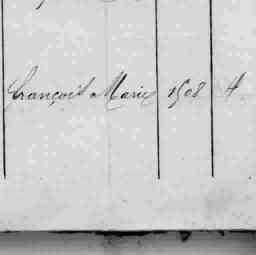 François Marie 1508 4